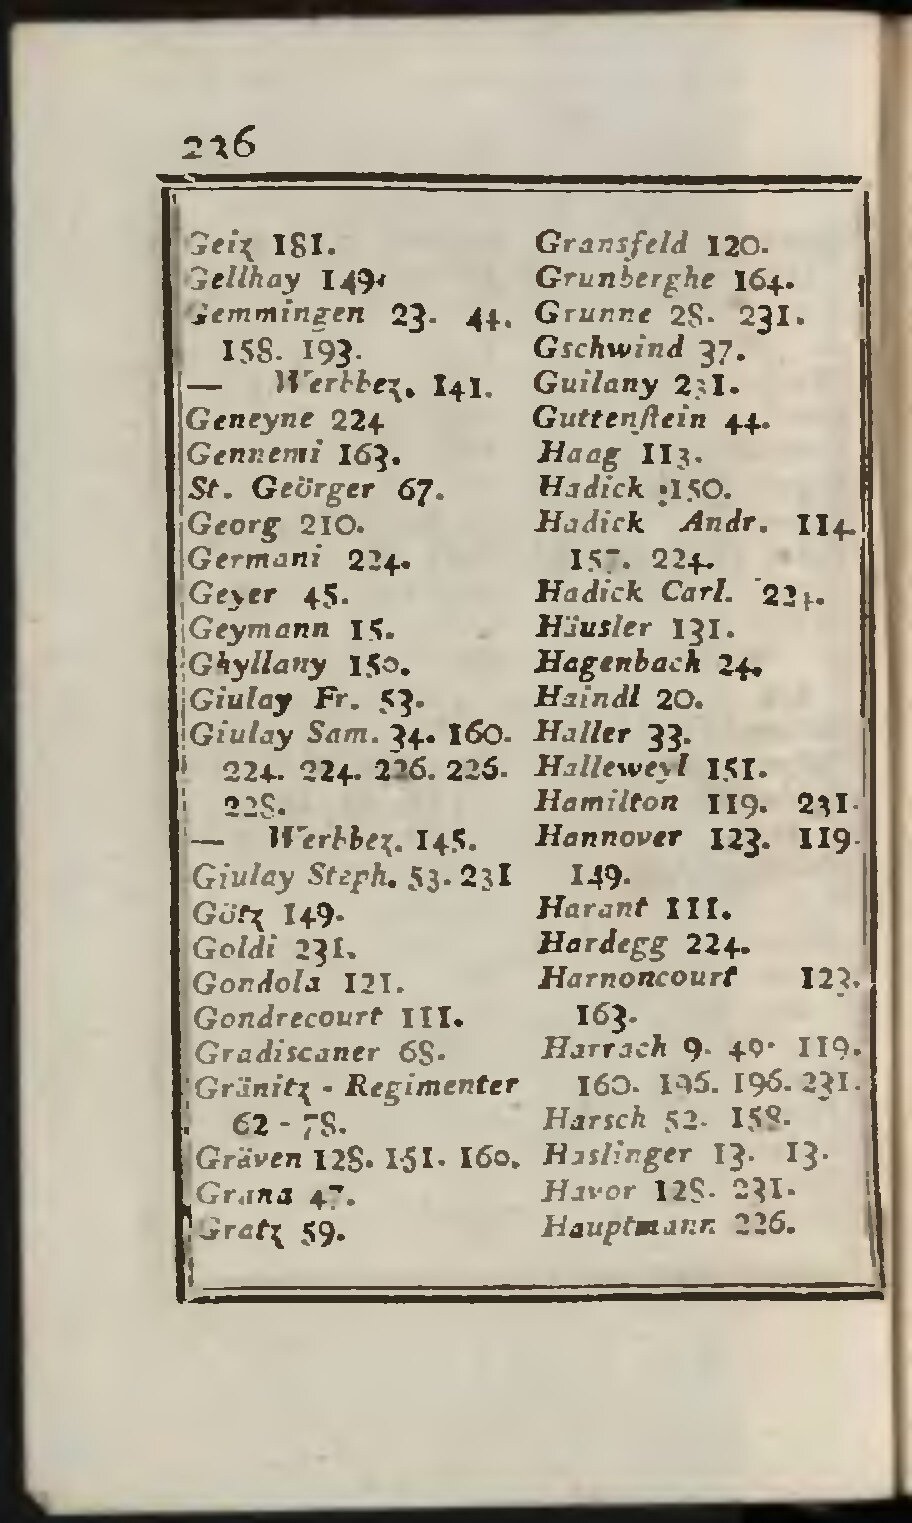 236
Geiz 181.
Gellhay 149.
Gemmingen 23. 44.
158. 193.
— Werbbez. 141.
Geneyne 224
Gennemi 163.
St. Geörger 67.
Georg 210.
Germani 224.
Geyer 45.
Geymann 15.
Ghyllany 150.
Giulay Fr. 53.
Giulay Sam. 34. 160.
224. 224. 226. 226.
228.
— Werbbez. 145.
Giulay Steph. 53. 231
Götz 149.
Goldi 231.
Gondola 121.
Gondrecourt 111.
Gradiscaner 68.
Gränitz - Regimenter
62 - 78.
Gräven 128. 151. 160.
Grana 47.
Gratz 59.
Gransfeld 120.
Grunberghe 164.
Grunne 28. 231.
Gschwind 37.
Guilany 231.
Guttenstein 44.
Haag 113.
Hadick 150.
Hadick Andr. 114.
157. 224.
Hadick Carl. 224.
Häusler 131.
Hagenbach 24.
Haindl 20.
Haller 33.
Halleweyl 151.
Hamilton 119. 231.
Hannover 123. 119.
149.
Harant 111.
Hardegg 224.
Harnoncourt 123.
163.
Harrach 9. 40. 119.
160. 196. 196. 231.
Harsch 52. 158.
Haslinger 13. 13.
Havor 128. 231.
Hauptmann 226.